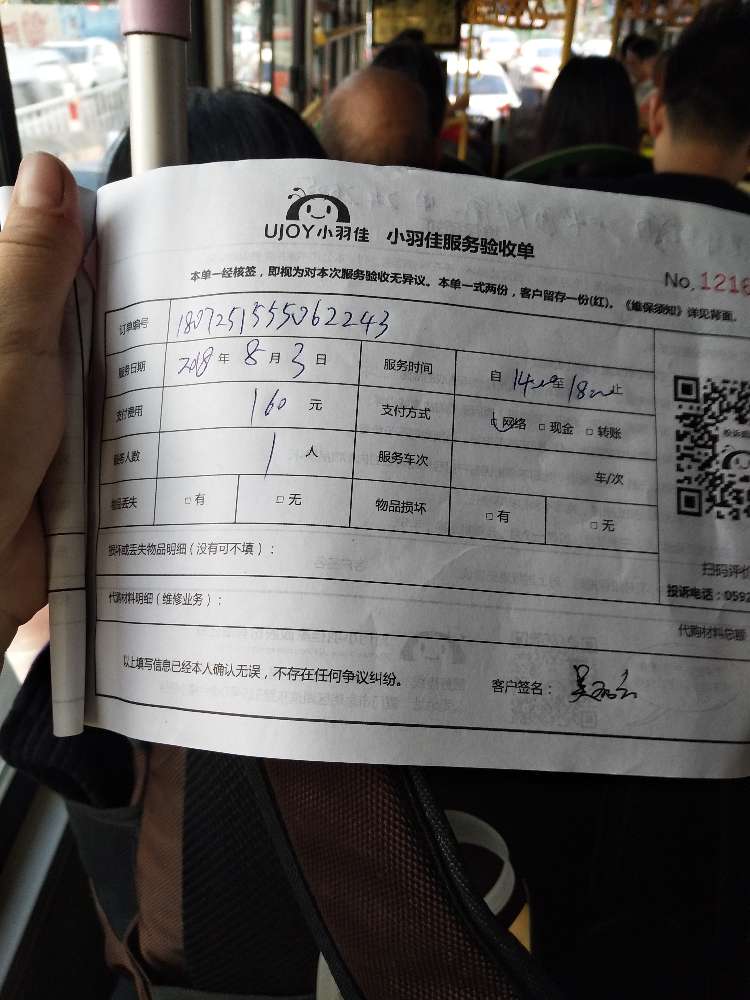 UJOY小羽佳 小羽佳服务验收单
No.1216
本单一经核签，即视为对本次服务验收无异议。本单一式两份，客户留存一份(红)。《维保须知》详见背面。
订单编号 1807251555062243
服务日期 2018年8月3日 服务时间 自14:00至18:00止
支付费用 160元 支付方式 □网络 □现金 □转账
服务人数 1人 服务车次 车/次
物品丢失 □有 □无 物品损坏 □有 □无
扫码评价
损坏或丢失物品明细（没有可不填）：
投诉电话：0592
代购材料明细（维修业务）：
代购材料总额
以上填写信息已经本人确认无误，不存在任何争议纠纷。 客户签名：